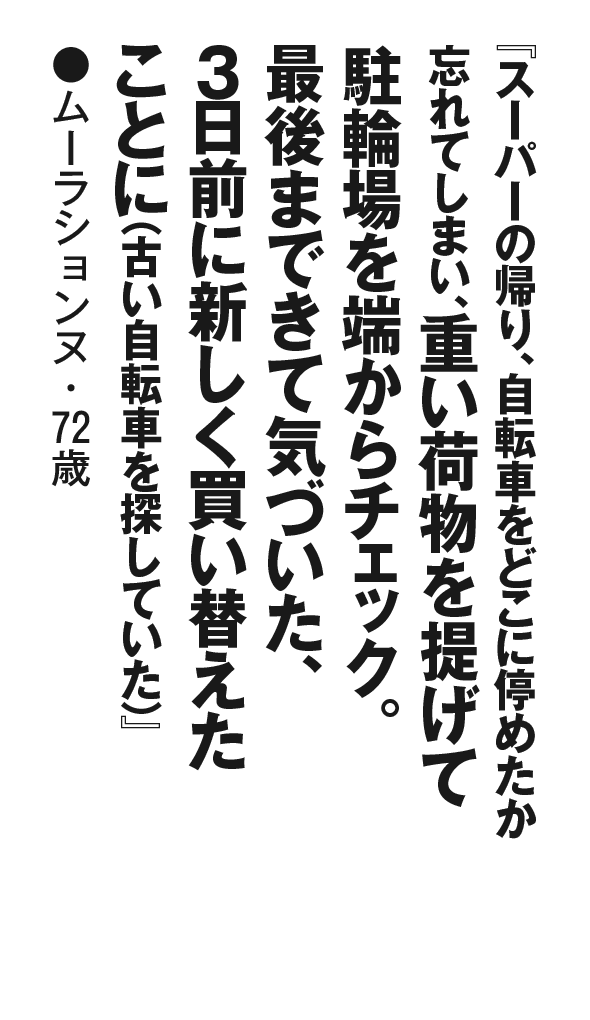 『スーパーの帰り、自転車をどこに停めたか
忘れてしまい、重い荷物を提げて
駐輪場を端からチェック。
最後まできて気づいた、
3日前に新しく買い替えた
ことに(古い自転車を探していた)』
●ムーラションヌ・72歳